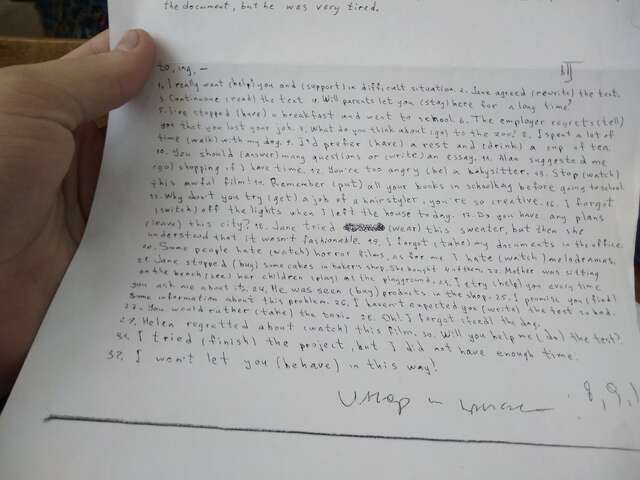 the document, but he was very tired.
to, ing, –
1. I really want (help) you and (support) in difficult situation. 2. Jane agreed (rewrite) the text.
3. Continue (read) the text. 4. Will parents let you (stay) here for a long time?
5. I've stopped (have) a breakfast and went to school. 6. The employer regrets (tell)
you that you lost your job. 7. What do you think about (go) to the zoo? 8. I spent a lot of
time (walk) with my dog. 9. I'd prefer (have) a rest and (drink) a cup of tea.
10. You should (answer) many questions or (write) an essay. 11. Alan suggested me
(go) shopping if I have time. 12. You're too angry (be) a babysitter. 13. Stop (watch)
this awful film! 14. Remember (put) all your books in schoolbag before going to school.
15. Why don't you try (get) a job of a hairstyler, you're so creative. 16. I forgot
(switch) off the lights when I left the house today. 17. Do you have any plans
(leave) this city? 18. Jane tried (wear) this sweater, but then she
understood that it wasn't fashionable. 19. I forgot (take) my documents in the office.
20. Some people hate (watch) horror films, as for me I hate (watch) melodramas.
21. Jane stopped (buy) some cakes in baker's shop. She bought 4 of them. 22. Mother was sitting
on the bench (see) her children (play) at the playground. 23. I try (help) you every time
you ask me about it. 24. He was seen (buy) products in the shop. 25. I promise you (find)
some information about this problem. 26. I haven't expected you (write) the test so bad.
27. You would rather (take) the taxi. 28. Oh! I forgot (feed) the dog.
29. Helen regretted about (watch) this film. 30. Will you help me (do) the test?
31. I tried (finish) the project, but I did not have enough time.
32. I won't let you (behave) in this way!
8, 9,